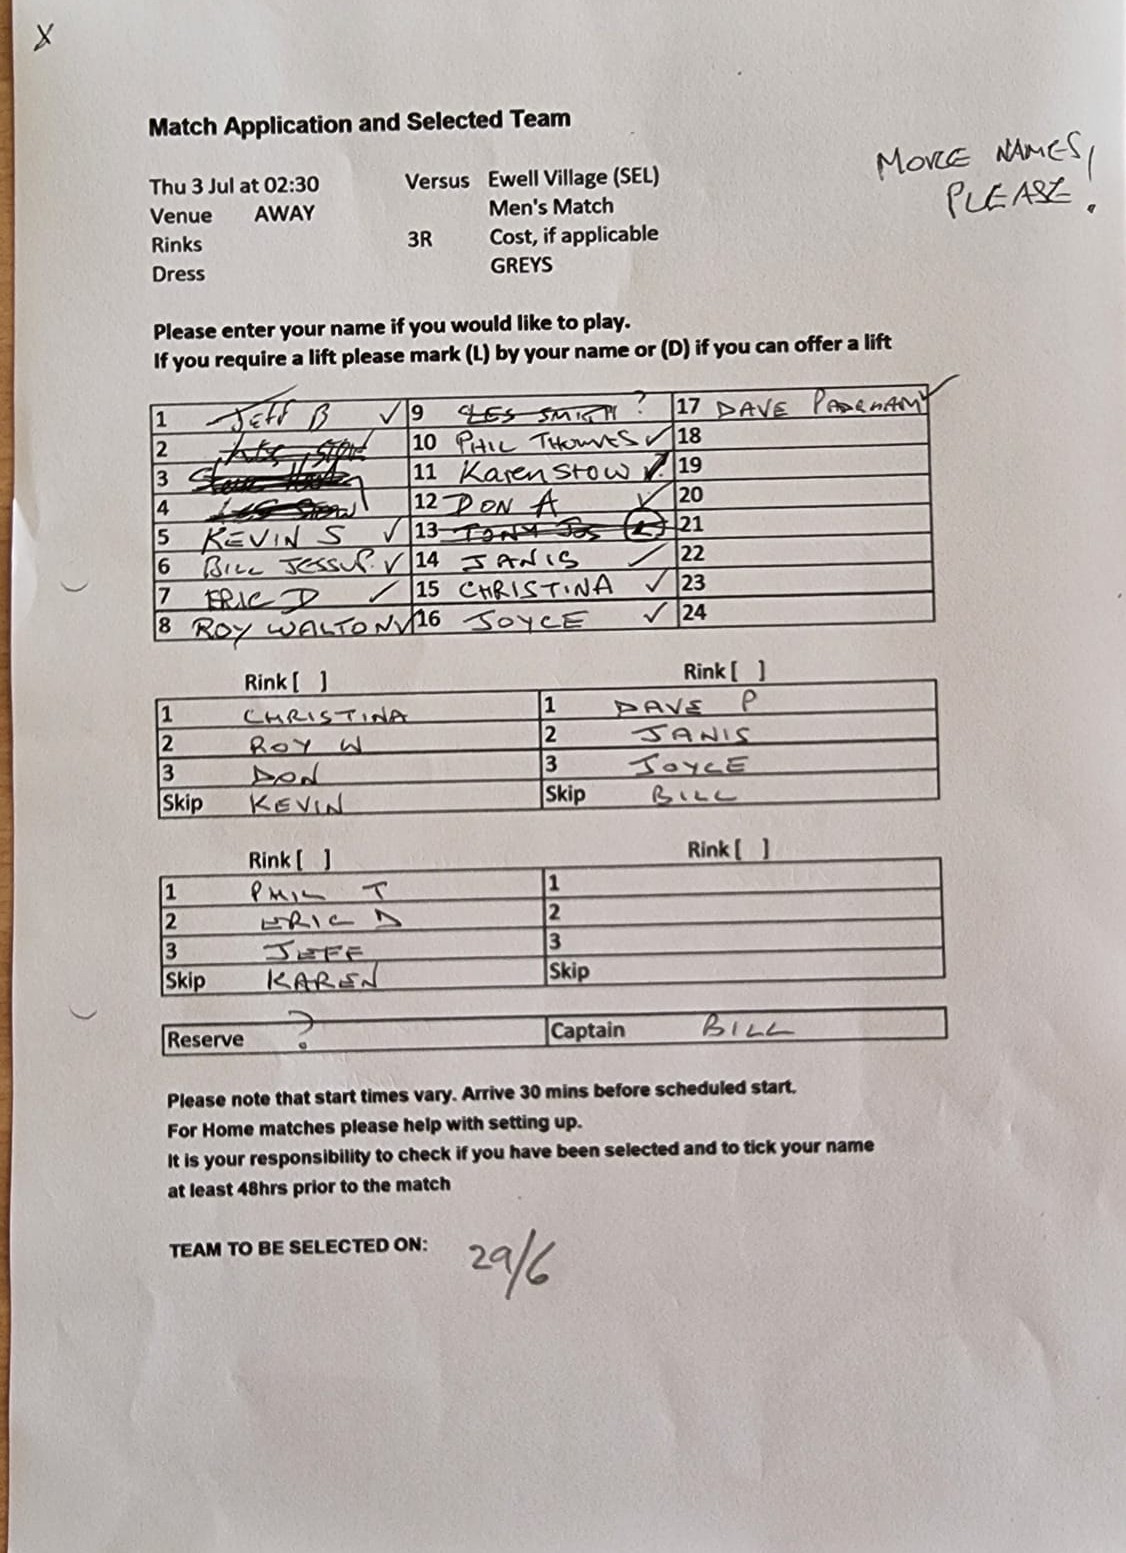 X
Match Application and Selected Team
MORE NAMES,
PLEASE!
Thu 3 Jul at 02:30 Versus Ewell Village (SEL)
Venue AWAY Men's Match
Rinks 3R Cost, if applicable
Dress GREYS
Please enter your name if you would like to play.
If you require a lift please mark (L) by your name or (D) if you can offer a lift
1 JEFF B ✓ 9 LES SMITH ? 17 DAVE PADGHAM ✓
2 10 PHIL THOMAS ✓ 18
3 11 Karen Stow ✓ 19
4 12 DON A ✓ 20
5 KEVIN S ✓ 13 TONY (L) 21
6 BILL JESSUP ✓ 14 JANIS ✓ 22
7 ERIC D ✓ 15 CHRISTINA ✓ 23
8 ROY WALTON ✓ 16 JOYCE ✓ 24
Rink [ ] Rink [ ]
1 CHRISTINA 1 DAVE P
2 ROY W 2 JANIS
3 DON 3 JOYCE
Skip KEVIN Skip BILL
Rink [ ] Rink [ ]
1 PHIL T 1
2 ERIC D 2
3 JEFF 3
Skip KAREN Skip
Reserve ? Captain BILL
Please note that start times vary. Arrive 30 mins before scheduled start.
For Home matches please help with setting up.
It is your responsibility to check if you have been selected and to tick your name
at least 48hrs prior to the match
TEAM TO BE SELECTED ON: 29/6